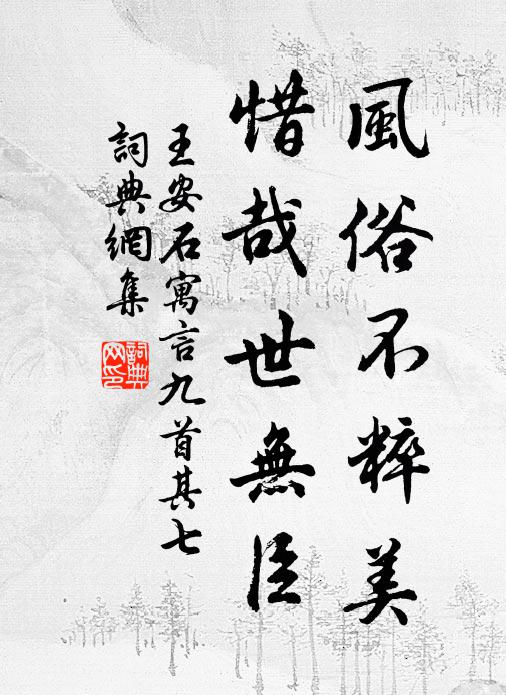 風俗不粹美
惜哉世無臣
王安石寓言九首其七
詞典網集
詞典網印